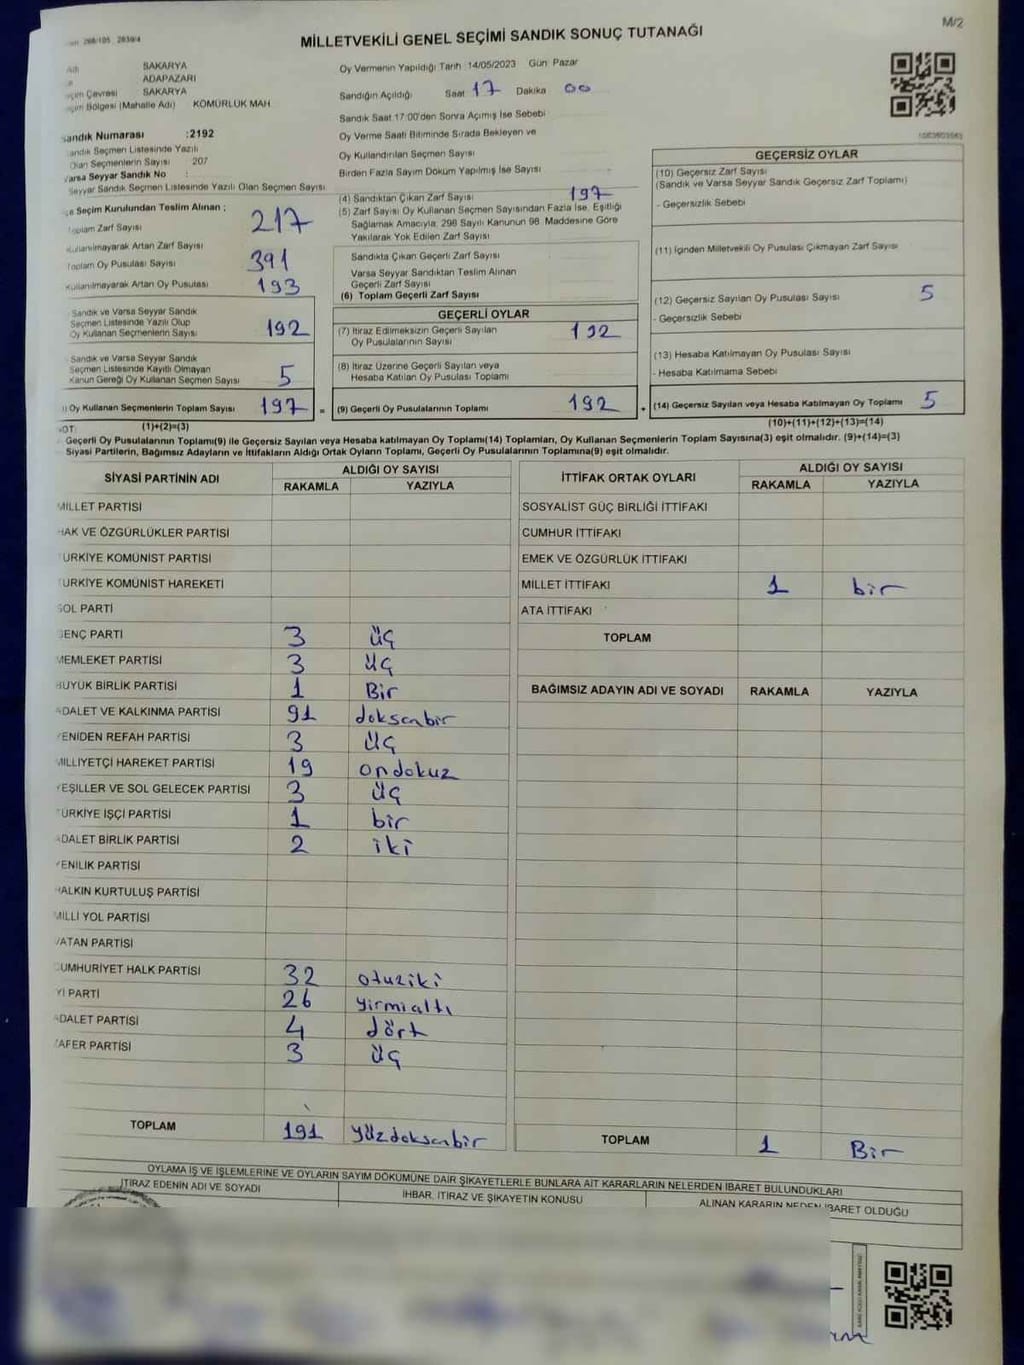 M/2
MİLLETVEKİLİ GENEL SEÇİMİ SANDIK SONUÇ TUTANAĞI
SAKARYA
ADAPAZARI
SAKARYA
Bölgesi (Mahalle Adı) KÖMÜRLÜK MAH
Sandık Numarası :2192
Sandık Seçmen Listesinde Yazılı
Olan Seçmenlerin Sayısı 207
Varsa Seyyar Sandık No :
Seyyar Sandık Seçmen Listesinde Yazılı Olan Seçmen Sayısı
Oy Vermenin Yapıldığı Tarih 14/05/2023 Gün Pazar
Sandığın Açıldığı Saat 17 Dakika 00
Sandık Saat 17:00'den Sonra Açımış İse Sebebi
Oy Verme Saati Bitiminde Sırada Bekleyen ve
Oy Kullandırılan Seçmen Sayısı
Birden Fazla Sayım Döküm Yapılmış İse Sayısı
Seçim Kurulundan Teslim Alınan ;
Toplam Zarf Sayısı 217
Kullanılmayarak Artan Zarf Sayısı
Toplam Oy Pusulası Sayısı 391
Kullanılmayarak Artan Oy Pusulası 193
Sandık ve Varsa Seyyar Sandık
Seçmen Listesinde Yazılı Olup
Oy Kullanan Seçmenlerin Sayısı 192
Sandık ve Varsa Seyyar Sandık
Seçmen Listesinde Kayıtlı Olmayan
Kanun Gereği Oy Kullanan Seçmen Sayısı 5
Oy Kullanan Seçmenlerin Toplam Sayısı 197
(1)+(2)=(3)
(4) Sandıktan Çıkan Zarf Sayısı 197
(5) Zarf Sayısı Oy Kullanan Seçmen Sayısından Fazla İse, Eşitliği
Sağlamak Amacıyla, 298 Sayılı Kanunun 98. Maddesine Göre
Yakılarak Yok Edilen Zarf Sayısı
Sandıkta Çıkan Geçerli Zarf Sayısı
Varsa Seyyar Sandıktan Teslim Alınan
Geçerli Zarf Sayısı
(6) Toplam Geçerli Zarf Sayısı
GEÇERLİ OYLAR
(7) İtiraz Edilmeksizin Geçerli Sayılan
Oy Pusulalarının Sayısı 192
(8) İtiraz Üzerine Geçerli Sayılan veya
Hesaba Katılan Oy Pusulası Toplamı
= (9) Geçerli Oy Pusulalarının Toplamı 192
GEÇERSİZ OYLAR
(10) Geçersiz Zarf Sayısı
(Sandık ve Varsa Seyyar Sandık Geçersiz Zarf Toplamı)
- Geçersizlik Sebebi
(11) İçinden Milletvekili Oy Pusulası Çıkmayan Zarf Sayısı
(12) Geçersiz Sayılan Oy Pusulası Sayısı 5
- Geçersizlik Sebebi
(13) Hesaba Katılmayan Oy Pusulası Sayısı
- Hesaba Katılmama Sebebi
(14) Geçersiz Sayılan veya Hesaba Katılmayan Oy Toplamı 5
(10)+(11)+(12)+(13)=(14)
Geçerli Oy Pusulalarının Toplamı(9) ile Geçersiz Sayılan veya Hesaba katılmayan Oy Toplamı(14) Toplamları, Oy Kullanan Seçmenlerin Toplam Sayısına(3) eşit olmalıdır. (9)+(14)=(3)
Siyasi Partilerin, Bağımsız Adayların ve İttifakların Aldığı Ortak Oyların Toplamı, Geçerli Oy Pusulalarının Toplamına(9) eşit olmalıdır.
SİYASİ PARTİNİN ADI
ALDIĞI OY SAYISI
RAKAMLA YAZIYLA
MİLLET PARTİSİ
HAK VE ÖZGÜRLÜKLER PARTİSİ
TÜRKİYE KOMÜNİST PARTİSİ
TÜRKİYE KOMÜNİST HAREKETİ
SOL PARTİ
GENÇ PARTİ 3 üç
MEMLEKET PARTİSİ 3 üç
BÜYÜK BİRLİK PARTİSİ 1 Bir
ADALET VE KALKINMA PARTİSİ 91 doksanbir
YENİDEN REFAH PARTİSİ 3 üç
MİLLİYETÇİ HAREKET PARTİSİ 19 ondokuz
YEŞİLLER VE SOL GELECEK PARTİSİ 3 üç
TÜRKİYE İŞÇİ PARTİSİ 1 bir
ADALET BİRLİK PARTİSİ 2 iki
YENİLİK PARTİSİ
HALKIN KURTULUŞ PARTİSİ
MİLLİ YOL PARTİSİ
VATAN PARTİSİ
CUMHURİYET HALK PARTİSİ 32 otuziki
İYİ PARTİ 26 yirmialtı
ADALET PARTİSİ 4 dört
ZAFER PARTİSİ 3 üç
TOPLAM 191 yüzdoksanbir
İTTİFAK ORTAK OYLARI
ALDIĞI OY SAYISI
RAKAMLA YAZIYLA
SOSYALİST GÜÇ BİRLİĞİ İTTİFAKI
CUMHUR İTTİFAKI
EMEK VE ÖZGÜRLÜK İTTİFAKI
MİLLET İTTİFAKI 1 bir
ATA İTTİFAKI
TOPLAM
BAĞIMSIZ ADAYIN ADI VE SOYADI RAKAMLA YAZIYLA
TOPLAM 1 Bir
OYLAMA İŞ VE İŞLEMLERİNE VE OYLARIN SAYIM DÖKÜMÜNE DAİR ŞİKAYETLERLE BUNLARA AİT KARARLARIN NELERDEN İBARET BULUNDUKLARI
İTİRAZ EDENİN ADI VE SOYADI
İHBAR, İTİRAZ VE ŞİKAYETİN KONUSU
ALINAN KARARIN NEDEN İBARET OLDUĞU